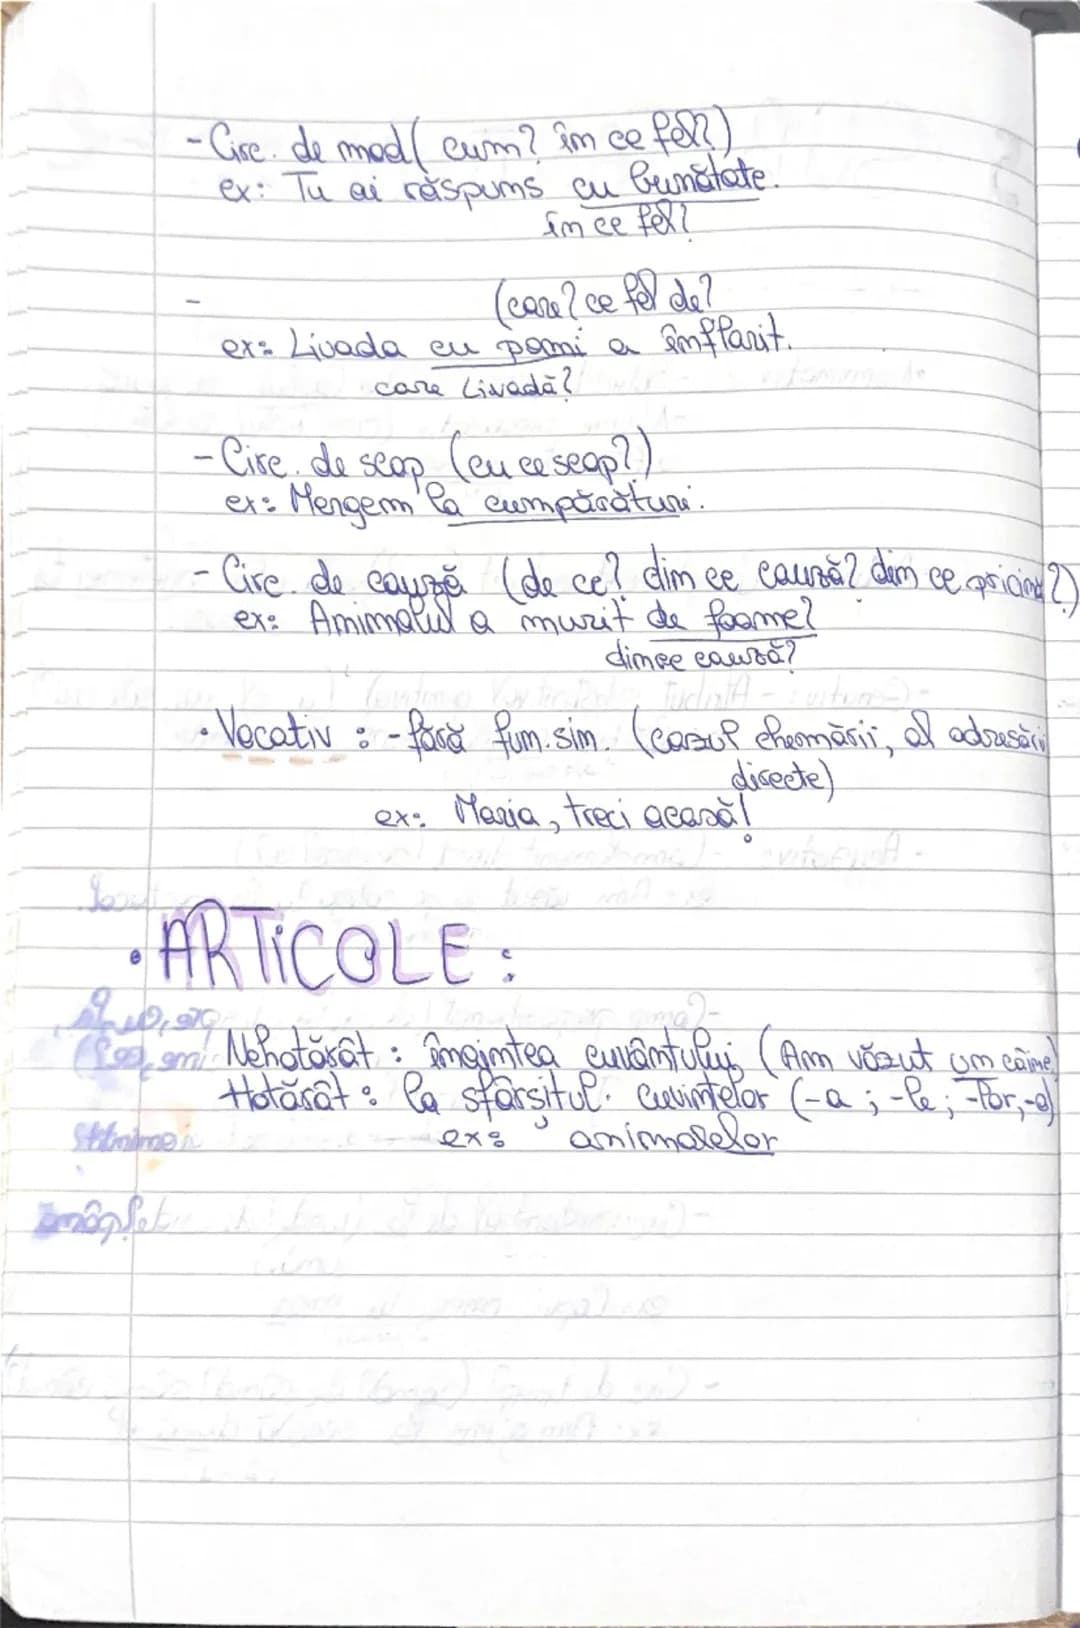 - Circ. de mod ( cum? în ce fel?)
ex: Tu ai răspuns cu bunătate.
în ce fel?
- (care? ce fel de?
ex: Livada cu pomi a înflorit.
care livadă?
- Circ. de scop (cu ce scop?)
ex: Mergem la cumpărături.
- Circ. de cauză (de ce? din ce cauză? din ce pricină?)
ex: Animalul a murit de foame?
din ce cauză?
• Vocativ : - fără fun. sin. (cazul chemării, al adresării
directe)
ex: Maria, treci acasă!
• ARTICOLE :
Nehotărât : înaintea cuvântului (Am văzut un câine)
Hotărât : la sfârșitul cuvintelor (-a ; -le ; -lor,
ex: animalelor